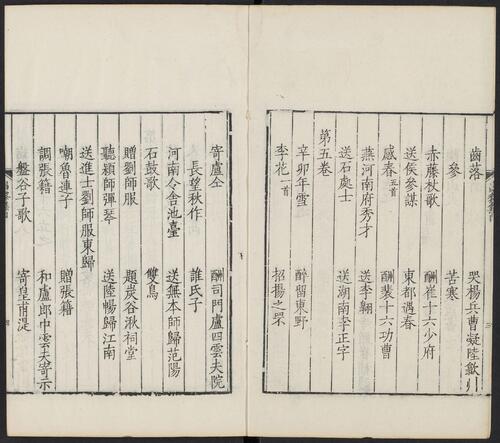 齒落 哭楊兵曹凝陸歙州
參 苦寒
赤藤杖歌 酬崔十六少府
送侯參謀 東都遇春
感春五首 酬裴十六功曹
燕河南府秀才 送李翱
送石處士 送湖南李正字
第五卷
辛卯年雪 醉留東野
李花一首 招揚之罘
寄盧仝 酬司門盧四雲夫院
長望秋作 誰氏子
河南令舍池臺 送無本師歸范陽
石鼓歌 雙鳥
贈劉師服 題炭谷湫祠堂
聽穎師彈琴 送陸暢歸江南
送進士劉師服東歸
嘲魯連子 贈張籍
調張籍 和盧郎中雲夫寄示
盤谷子歌 寄皇甫湜